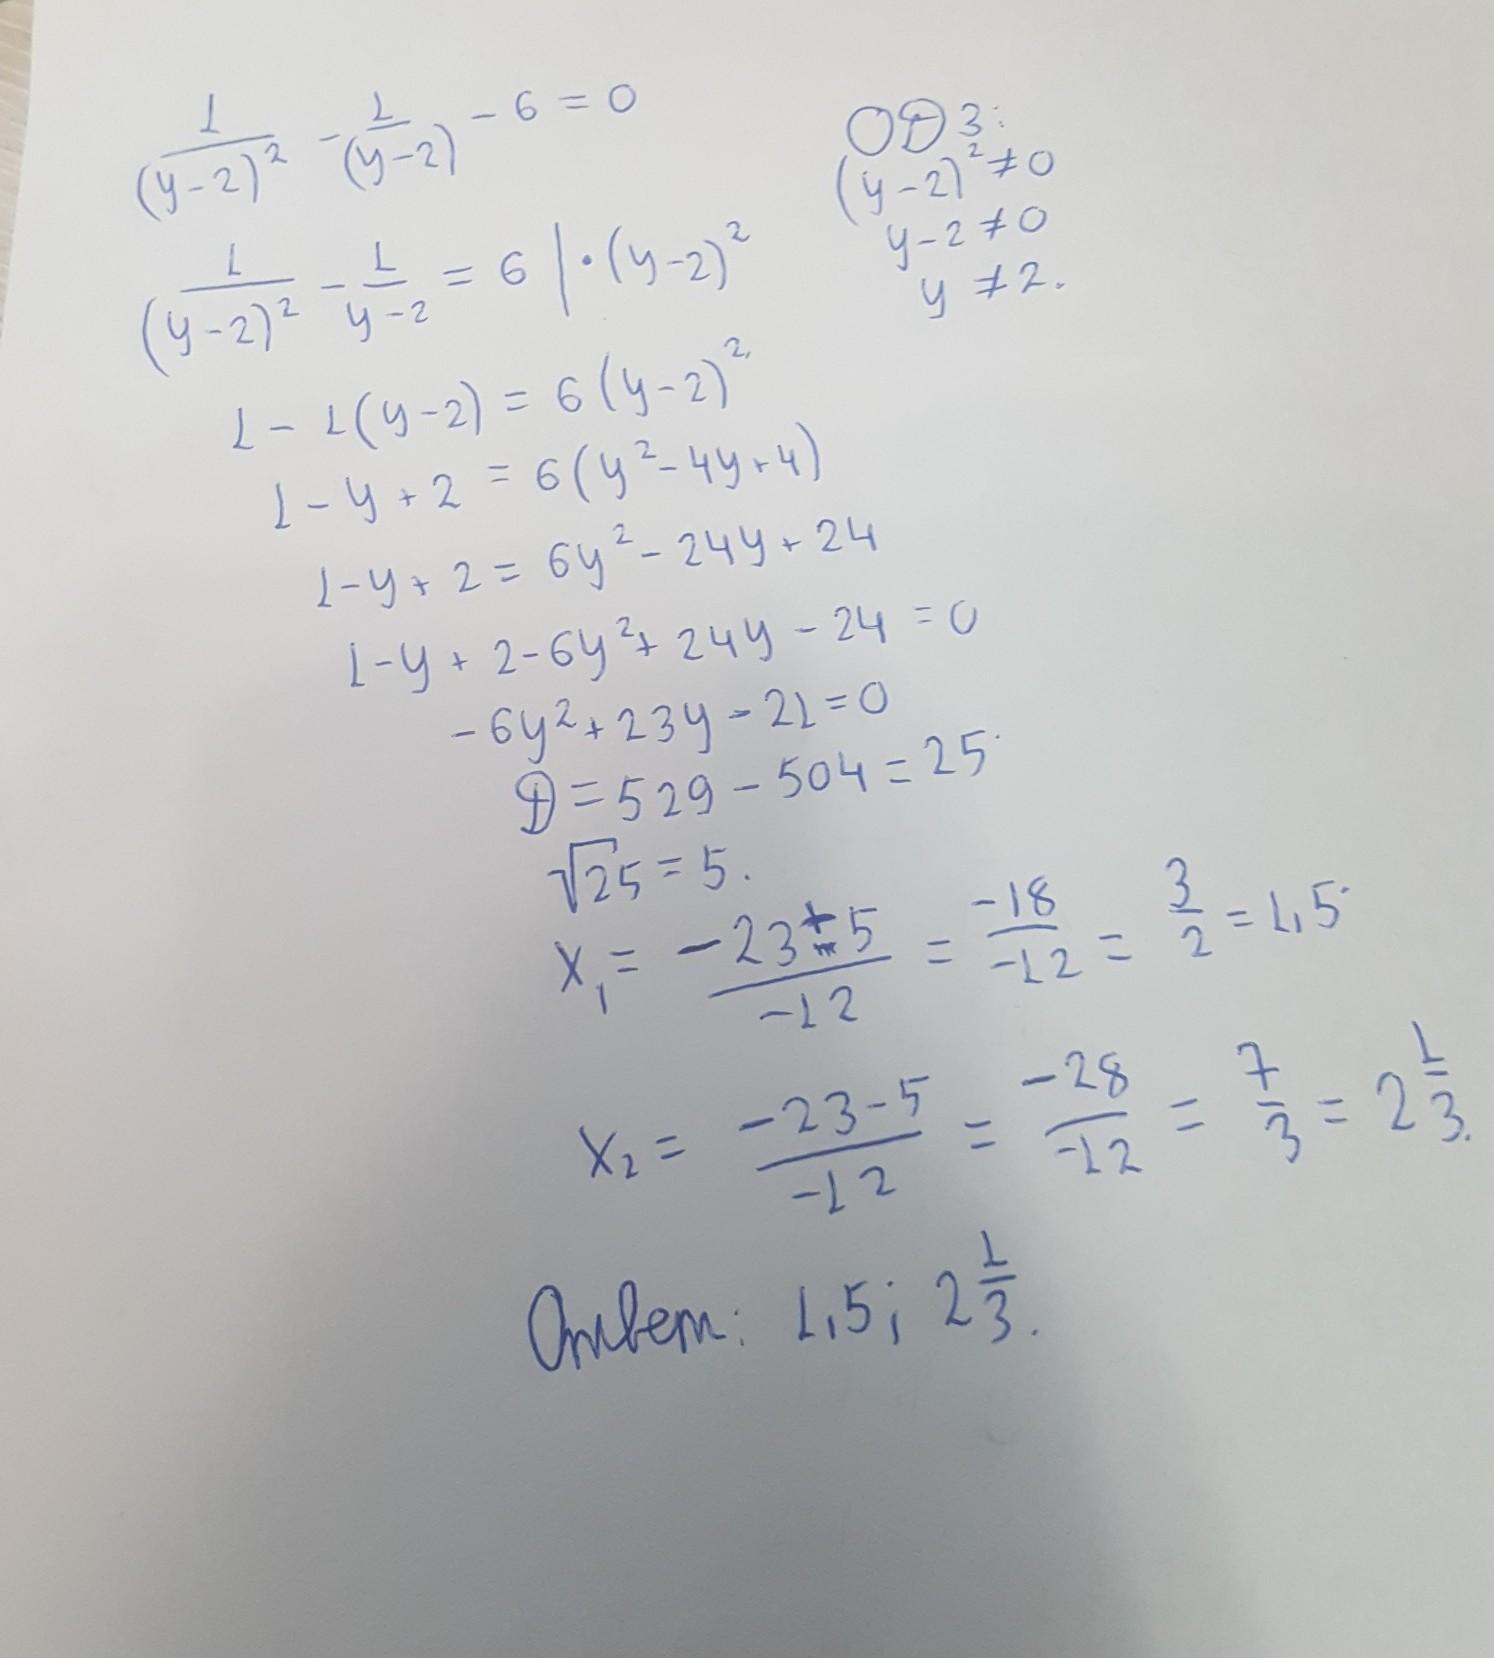 1/(y-2)² - 1/(y-2) - 6 = 0
ОДЗ:
(y-2)² ≠ 0
y-2 ≠ 0
y ≠ 2.
1/(y-2)² - 1/y-2 = 6 | · (y-2)²
1 - 1(y-2) = 6(y-2)²
1 - y + 2 = 6(y² - 4y + 4)
1 - y + 2 = 6y² - 24y + 24
1 - y + 2 - 6y² + 24y - 24 = 0
-6y² + 23y - 21 = 0
D = 529 - 504 = 25
√25 = 5.
x₁ = -23+5/-12 = -18/-12 = 3/2 = 1,5
x₂ = -23-5/-12 = -28/-12 = 7/3 = 2 1/3.
Ответ: 1,5; 2 1/3.